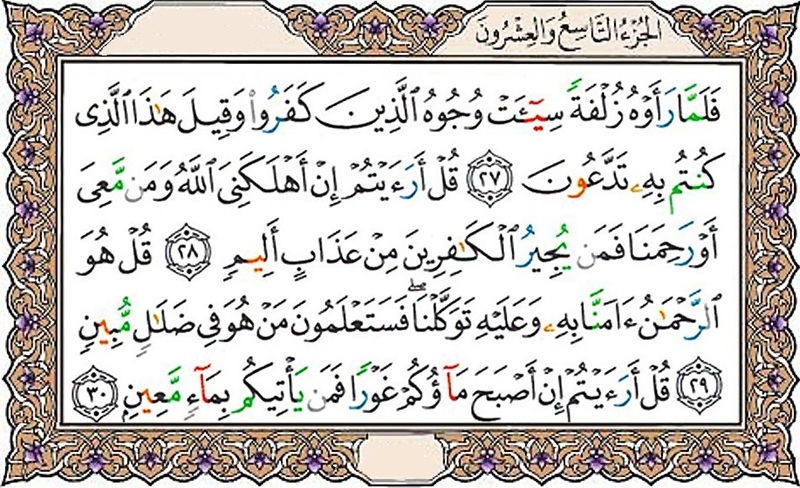 الجزء التاسع والعشرون
فَلَمَّا رَأَوْهُ زُلْفَةً سِيٓـَٔتْ وُجُوهُ ٱلَّذِينَ كَفَرُوا۟ وَقِيلَ هَٰذَا ٱلَّذِى
كُنتُم بِهِۦ تَدَّعُونَ ٢٧ قُلْ أَرَءَيْتُمْ إِنْ أَهْلَكَنِىَ ٱللَّهُ وَمَن مَّعِىَ
أَوْ رَحِمَنَا فَمَن يُجِيرُ ٱلْكَٰفِرِينَ مِنْ عَذَابٍ أَلِيمٍ ٢٨ قُلْ هُوَ
ٱلرَّحْمَٰنُ ءَامَنَّا بِهِۦ وَعَلَيْهِ تَوَكَّلْنَا ۖ فَسَتَعْلَمُونَ مَنْ هُوَ فِى ضَلَٰلٍ مُّبِينٍ
٢٩ قُلْ أَرَءَيْتُمْ إِنْ أَصْبَحَ مَآؤُكُمْ غَوْرًا فَمَن يَأْتِيكُم بِمَآءٍ مَّعِينٍۭ ٣٠